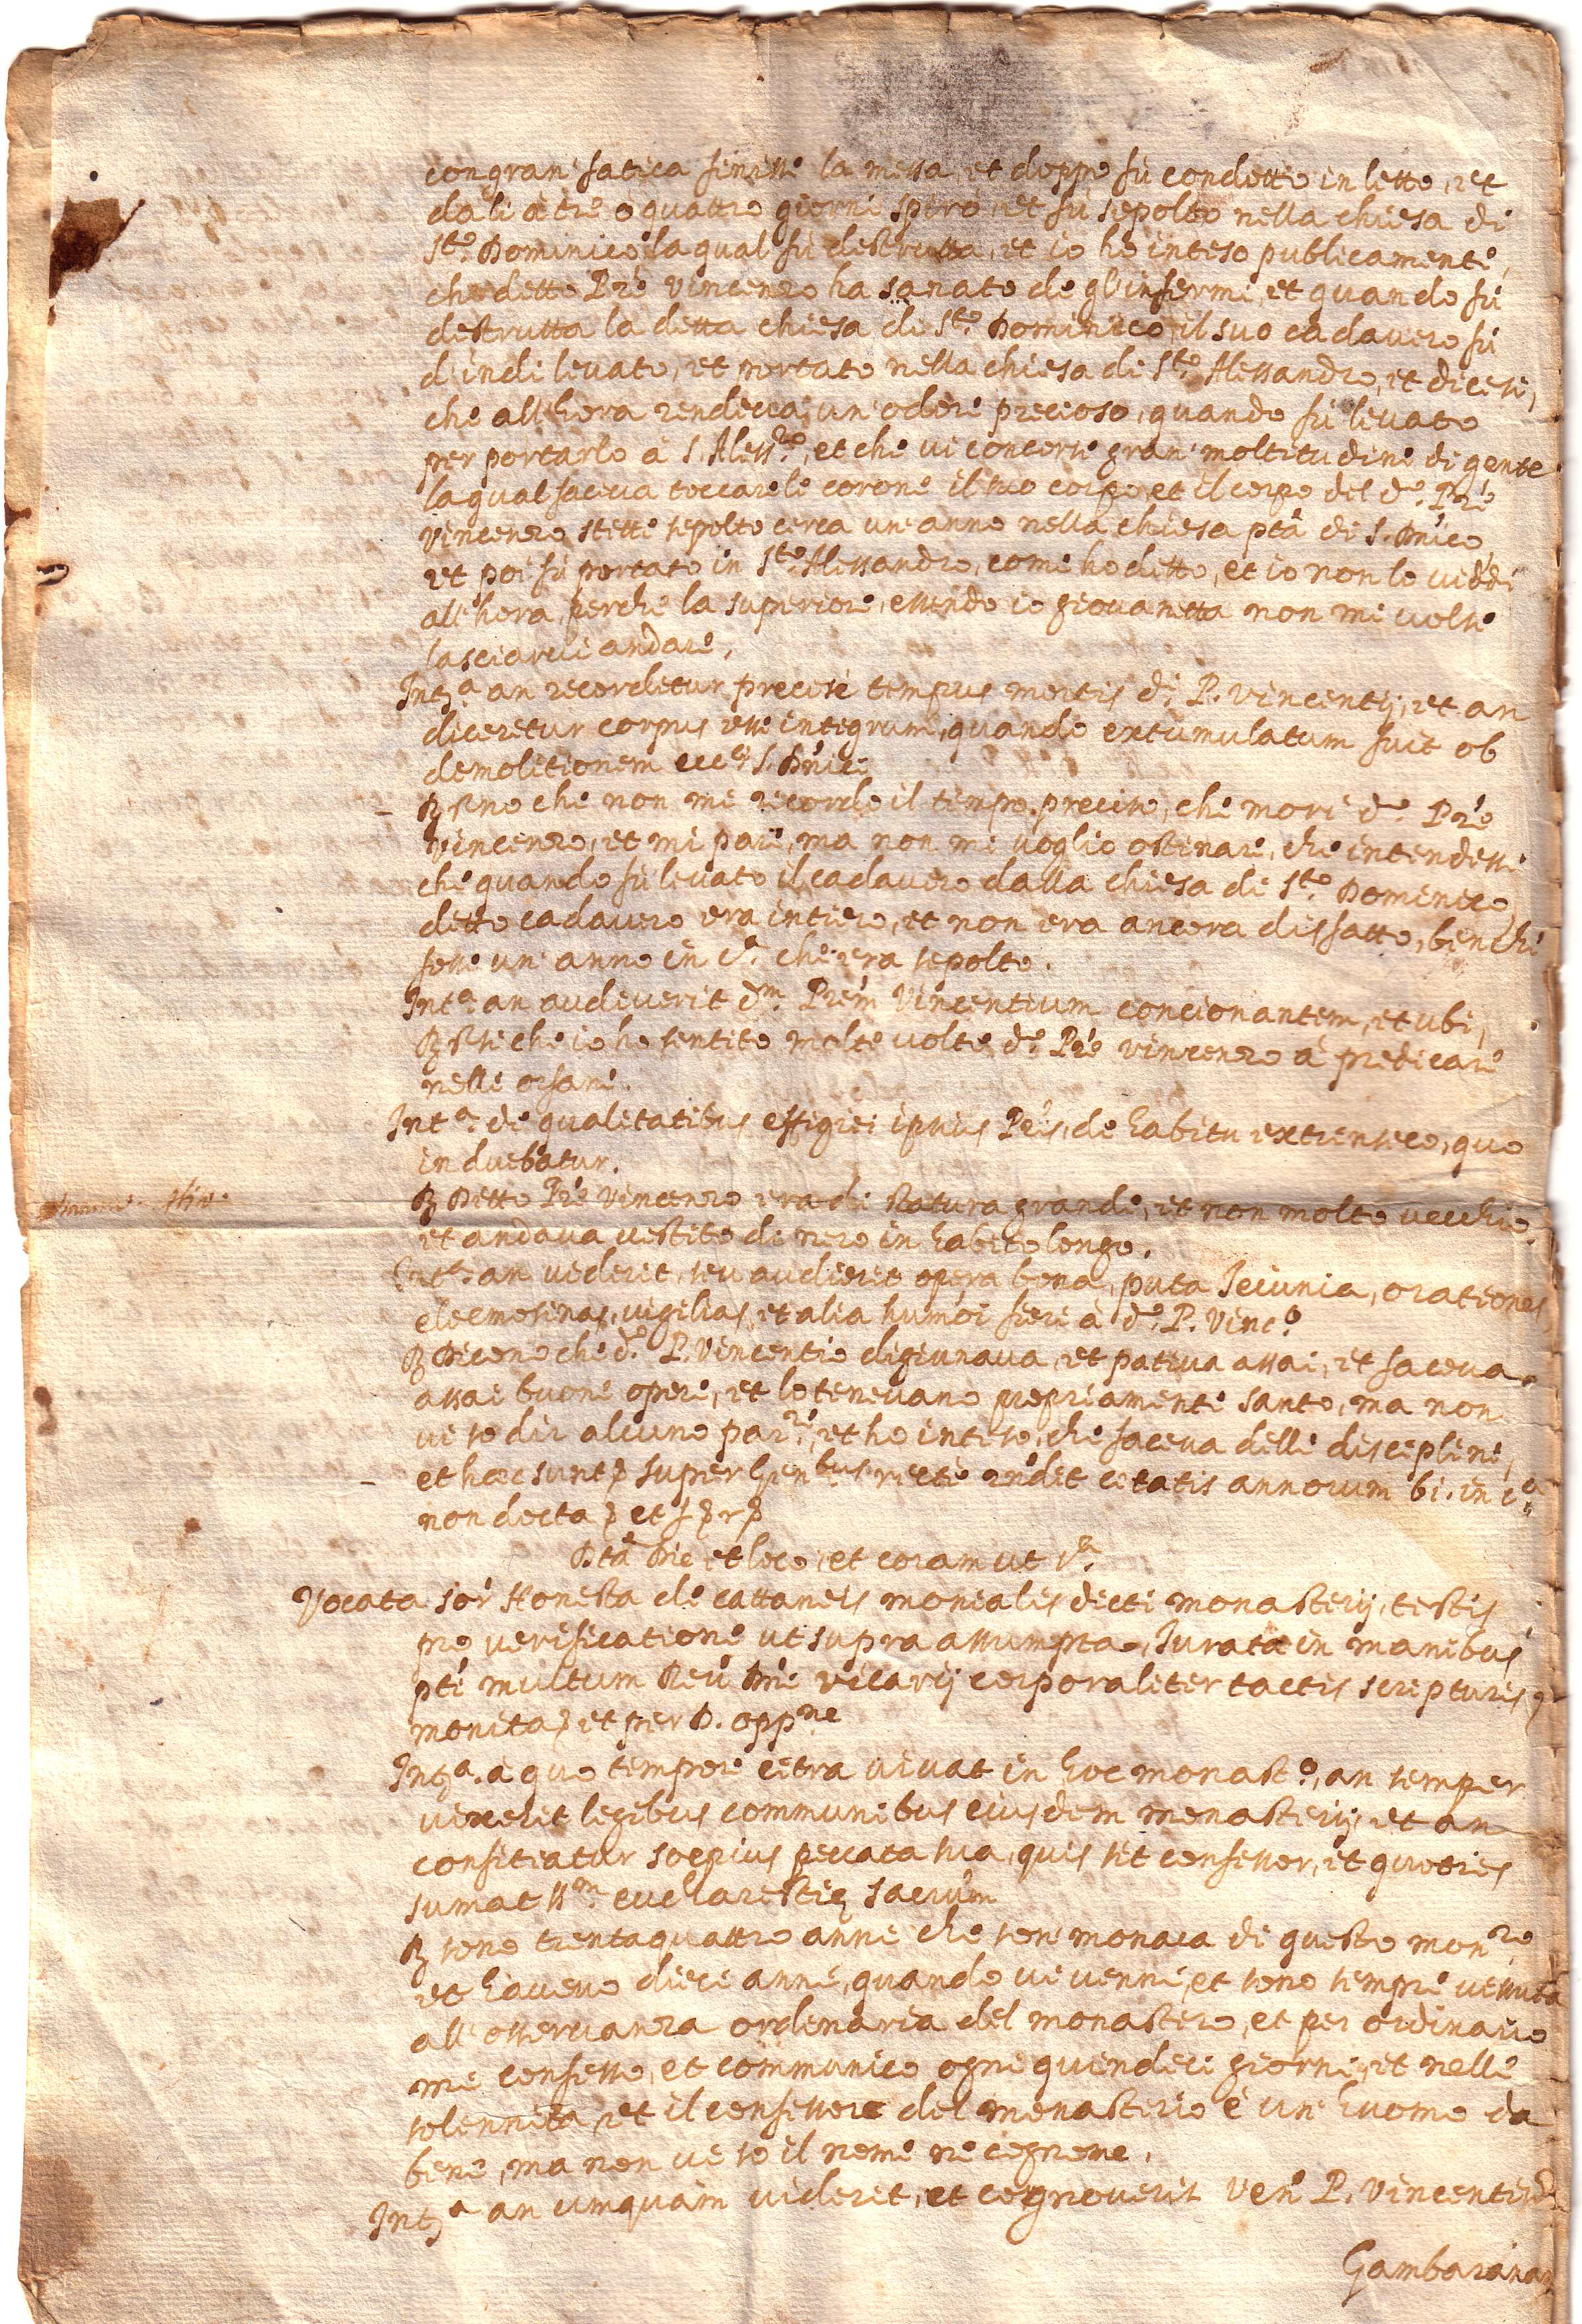 con gran' fatica finisse la messa, et doppo fù condotto in letto, et
da lì à trè o quattro giorni spirò, et fù sepolto nella chiesa di
S.to Dominico, la qual fù destrutta, et io hò inteso publicamente,
che detto Prè Vincenzo ha sanato de gl'infermi, et quando fù
destrutta la detta chiesa di S.to Dominico, il suo cadavero fù
d'indi levato, et portato nella chiesa di S.to Alessandro, et dicesi,
che all'hora rendeva un' odore precioso, quando fù levato
per portarlo à S. Aless.ro, et che vi concorse gran' moltitudine di gente
la qual faceva toccare le corone il suo corpo, et il corpo del d.o Prè
Vincenzo stette sepolto cerca un' anno nella chiesa ptà di S. Dnico
et poi fù portato in S.to Alessandro, come ho detto, et io non lo viddi
all'hora, perche la superiore, essendo io giovanetta non mi volse
lasciarvi andare,
Int.a an recordetur precise tempus mortis d.i P. Vincentij, et an
diceretur corpus esse integrum, quando extumulatum fuit ob
demolitionem eccl.e S. Dnici
non che non mi ricordo il tempo preciso, che morì d.o Prè
Vincenzo, et mi pare, ma non mi voglio ostinare, che intendessi
che quando fù levato il cadavero dalla chiesa di S.to Dominico
detto cadavero era intiero, et non era ancora disfatto, benche
fosse un' anno in c.a che era sepolto.
Int.a an audiverit d.m Prem Vincentium concionantem, et ubi,
che io ho sentito molte volte d.o Prè Vincenzo à predicare
nelli orfani.
Int.a de qualitatibus effigiei ipsius Pris, de habitu extrinseco, quo
induebatur.
R Detto Prè Vincenzo era di statura grande, et non molto vecchio,
et andava vestito di nero in habito longo.
Int.a an viderit, seu audierit opera bona, puta Jeiunia, orationes,
eleemosinas, vigilias, et alia humoi fieri à d.o P. Vinc.o
R Dicono che d.o P. Vincentio digiunava, et pativa assai, et faceva
assai buone opere, et lo tenevano propriamente santo, ma non
vi so dir alcuno par.re, et ho inteso, che faceva delle discipline,
et haec sunt super gen.bus recte rndit etatis annorum 61. in c.a
non docta et
Dtà Die et loco, et coram ut s.a
Vocata Sor Honesta de Cattaneis monialis dicti monasterij, testis
pro verificatione ut supra assumpta, Jurata in manibus
pti multum Reu Dni vicarij corporaliter tactis scripturis
monita et per D. opp.ne
Int.a à quo tempore citra vivat in hoc monast.o, an semper
vixerit legibus communibus eiusdem monasterij, et an
confiteatur soepius peccata sua, quis sit confessor, et quoties
sumat SS.m eucharestie sacrum
R sono trentaquattro anni che son monaca di questo mon.ro
et haveva dieci anni, quando vi venni, et sono sempre vissuta
all'osservanza ordenaria del monastero, et per ordinario
mi confesso, et communico ogni quindeci giorni, et nelle
solennità, et il confessore del monasterio è un' huomo da
bene, ma non vi so il nome ne cognome,
Int.a an umquam viderit, et cognoverit Ven. P. Vincentium
Gambaranam